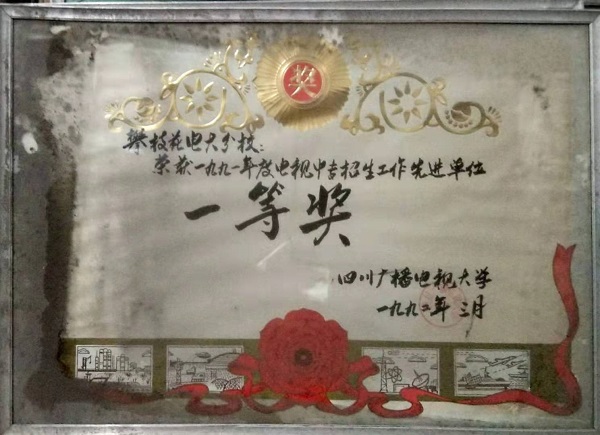 奖
攀枝花电大分校：
荣获一九九一年度电视中专招生工作先进单位
一等奖
四川广播电视大学
一九九二年 三月